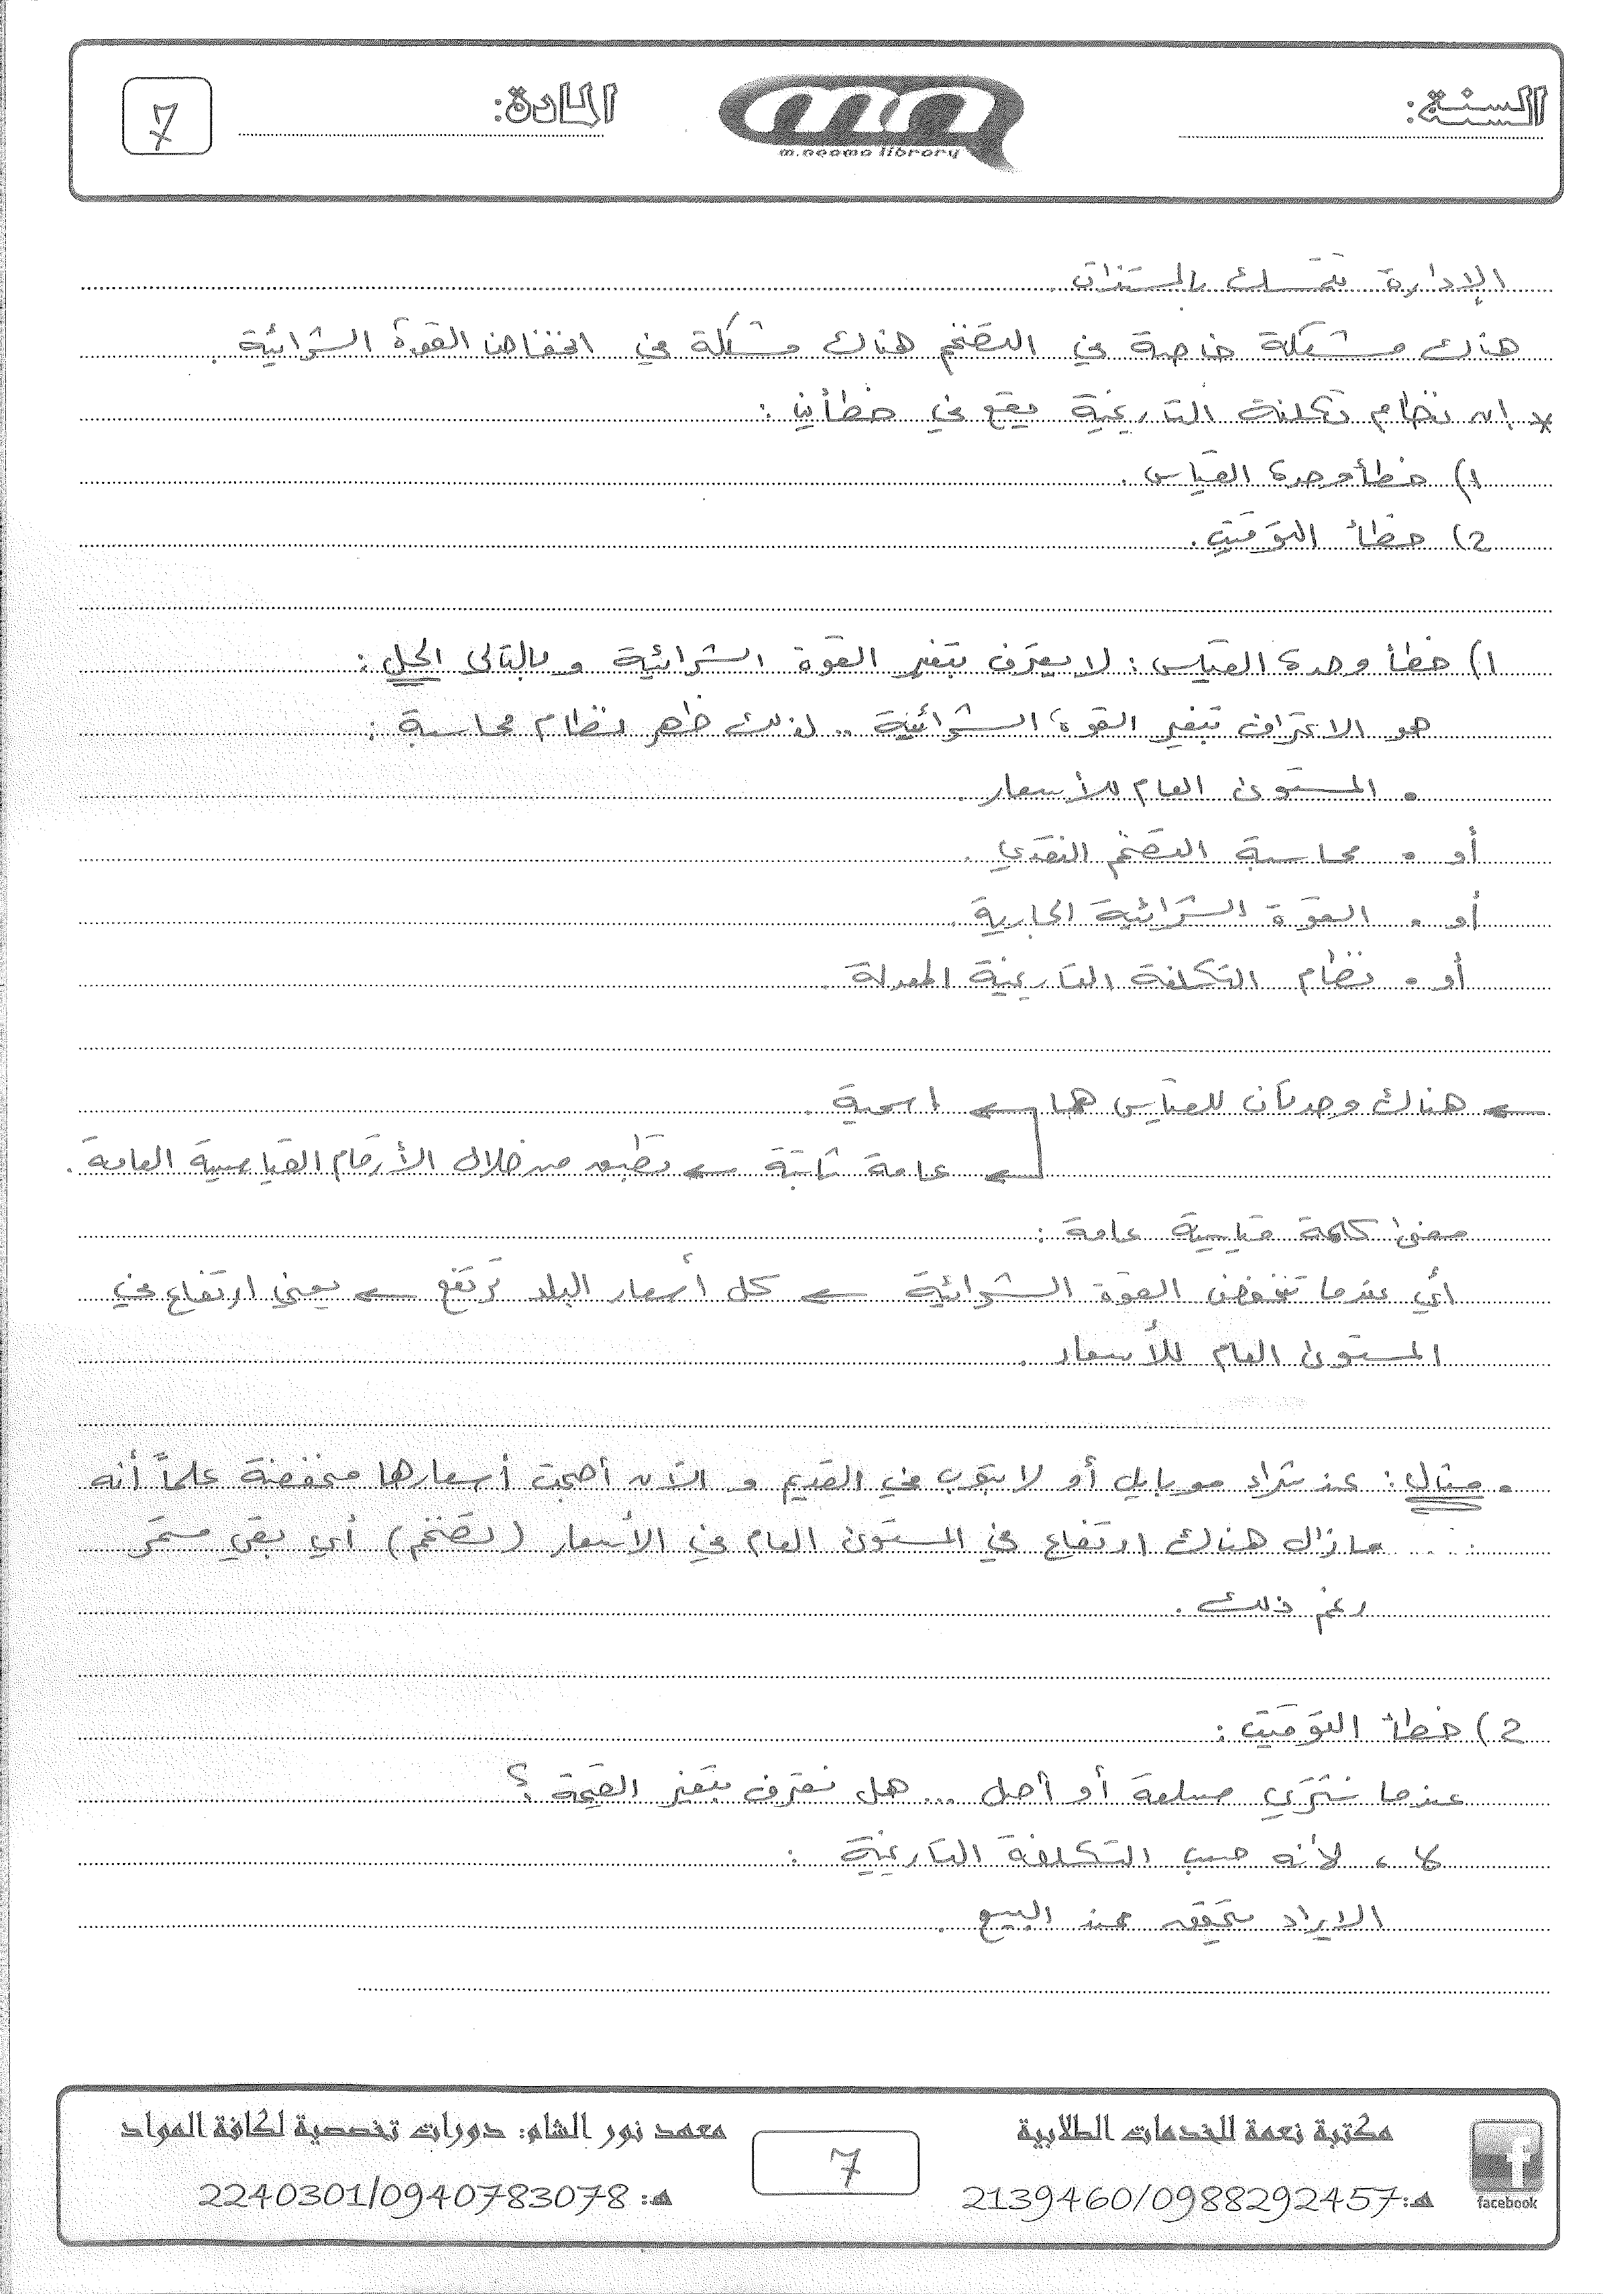 السنة:
m.neama library
المادة:
7
الإدارة تتمسك بالمستندات.
هناك مشكلة خاصة في التضخم هناك مشكلة في انخفاض القوة الشرائية.
* إن نظام تكلفة التاريخية يقع في خطأين:
1) خطأ وحدة القياس.
2) خطأ التوقيت.
1) خطأ وحدة القياس: لا يعترف بتغير القوة الشرائية و بالتالي الحل:
هو الاعتراف بتغير القوة الشرائية .. لذلك ظهر نظام محاسبة:
• المستوى العام للأسعار.
أو • محاسبة التضخم النقدي.
أو • القوة الشرائية الجارية.
أو • نظام التكلفة التاريخية المعدلة.
← هناك وحدتان للقياس هما ← اسمية.
← عامة ثابتة ← تطبق من خلال الأرقام القياسية العامة.
معنى كلمة قياسية عامة:
أي عندما تنخفض القوة الشرائية ← كل أسعار البلد ترتفع ← يعني ارتفاع في
المستوى العام للأسعار.
• مثال: عند شراء موبايل أو لابتوب في القديم و الآن أصبحت أسعارها منخفضة علماً أنه
مازال هناك ارتفاع في المستوى العام في الأسعار (تضخم) أي بقي مستمر
رغم ذلك.
2) خطأ التوقيت:
عندما نشتري سلعة أو أصل ... هل نعترف بتغير القيمة؟
لا، لأنه حسب التكلفة التاريخية:
الايراد يتحقق عند البيع.
مكتبة نعمة للخدمات الطلابية
هـ: 2139460/0988292457
facebook
7
معهد نور الشام: دورات تخصصية لكافة المواد
هـ: 2240301/0940783078